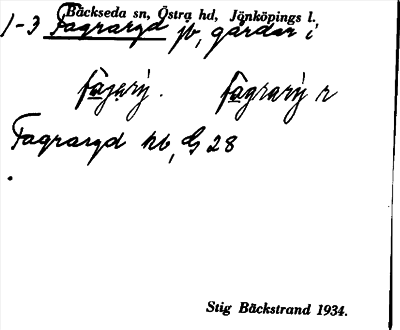 Bäckseda sn, Östra hd, Jönköpings l.
1-3 Fagraryd jb, gårdar i
fàjarý . fàgrarý r
Fagraryd kb, G 28
Stig Bäckstrand 1934.